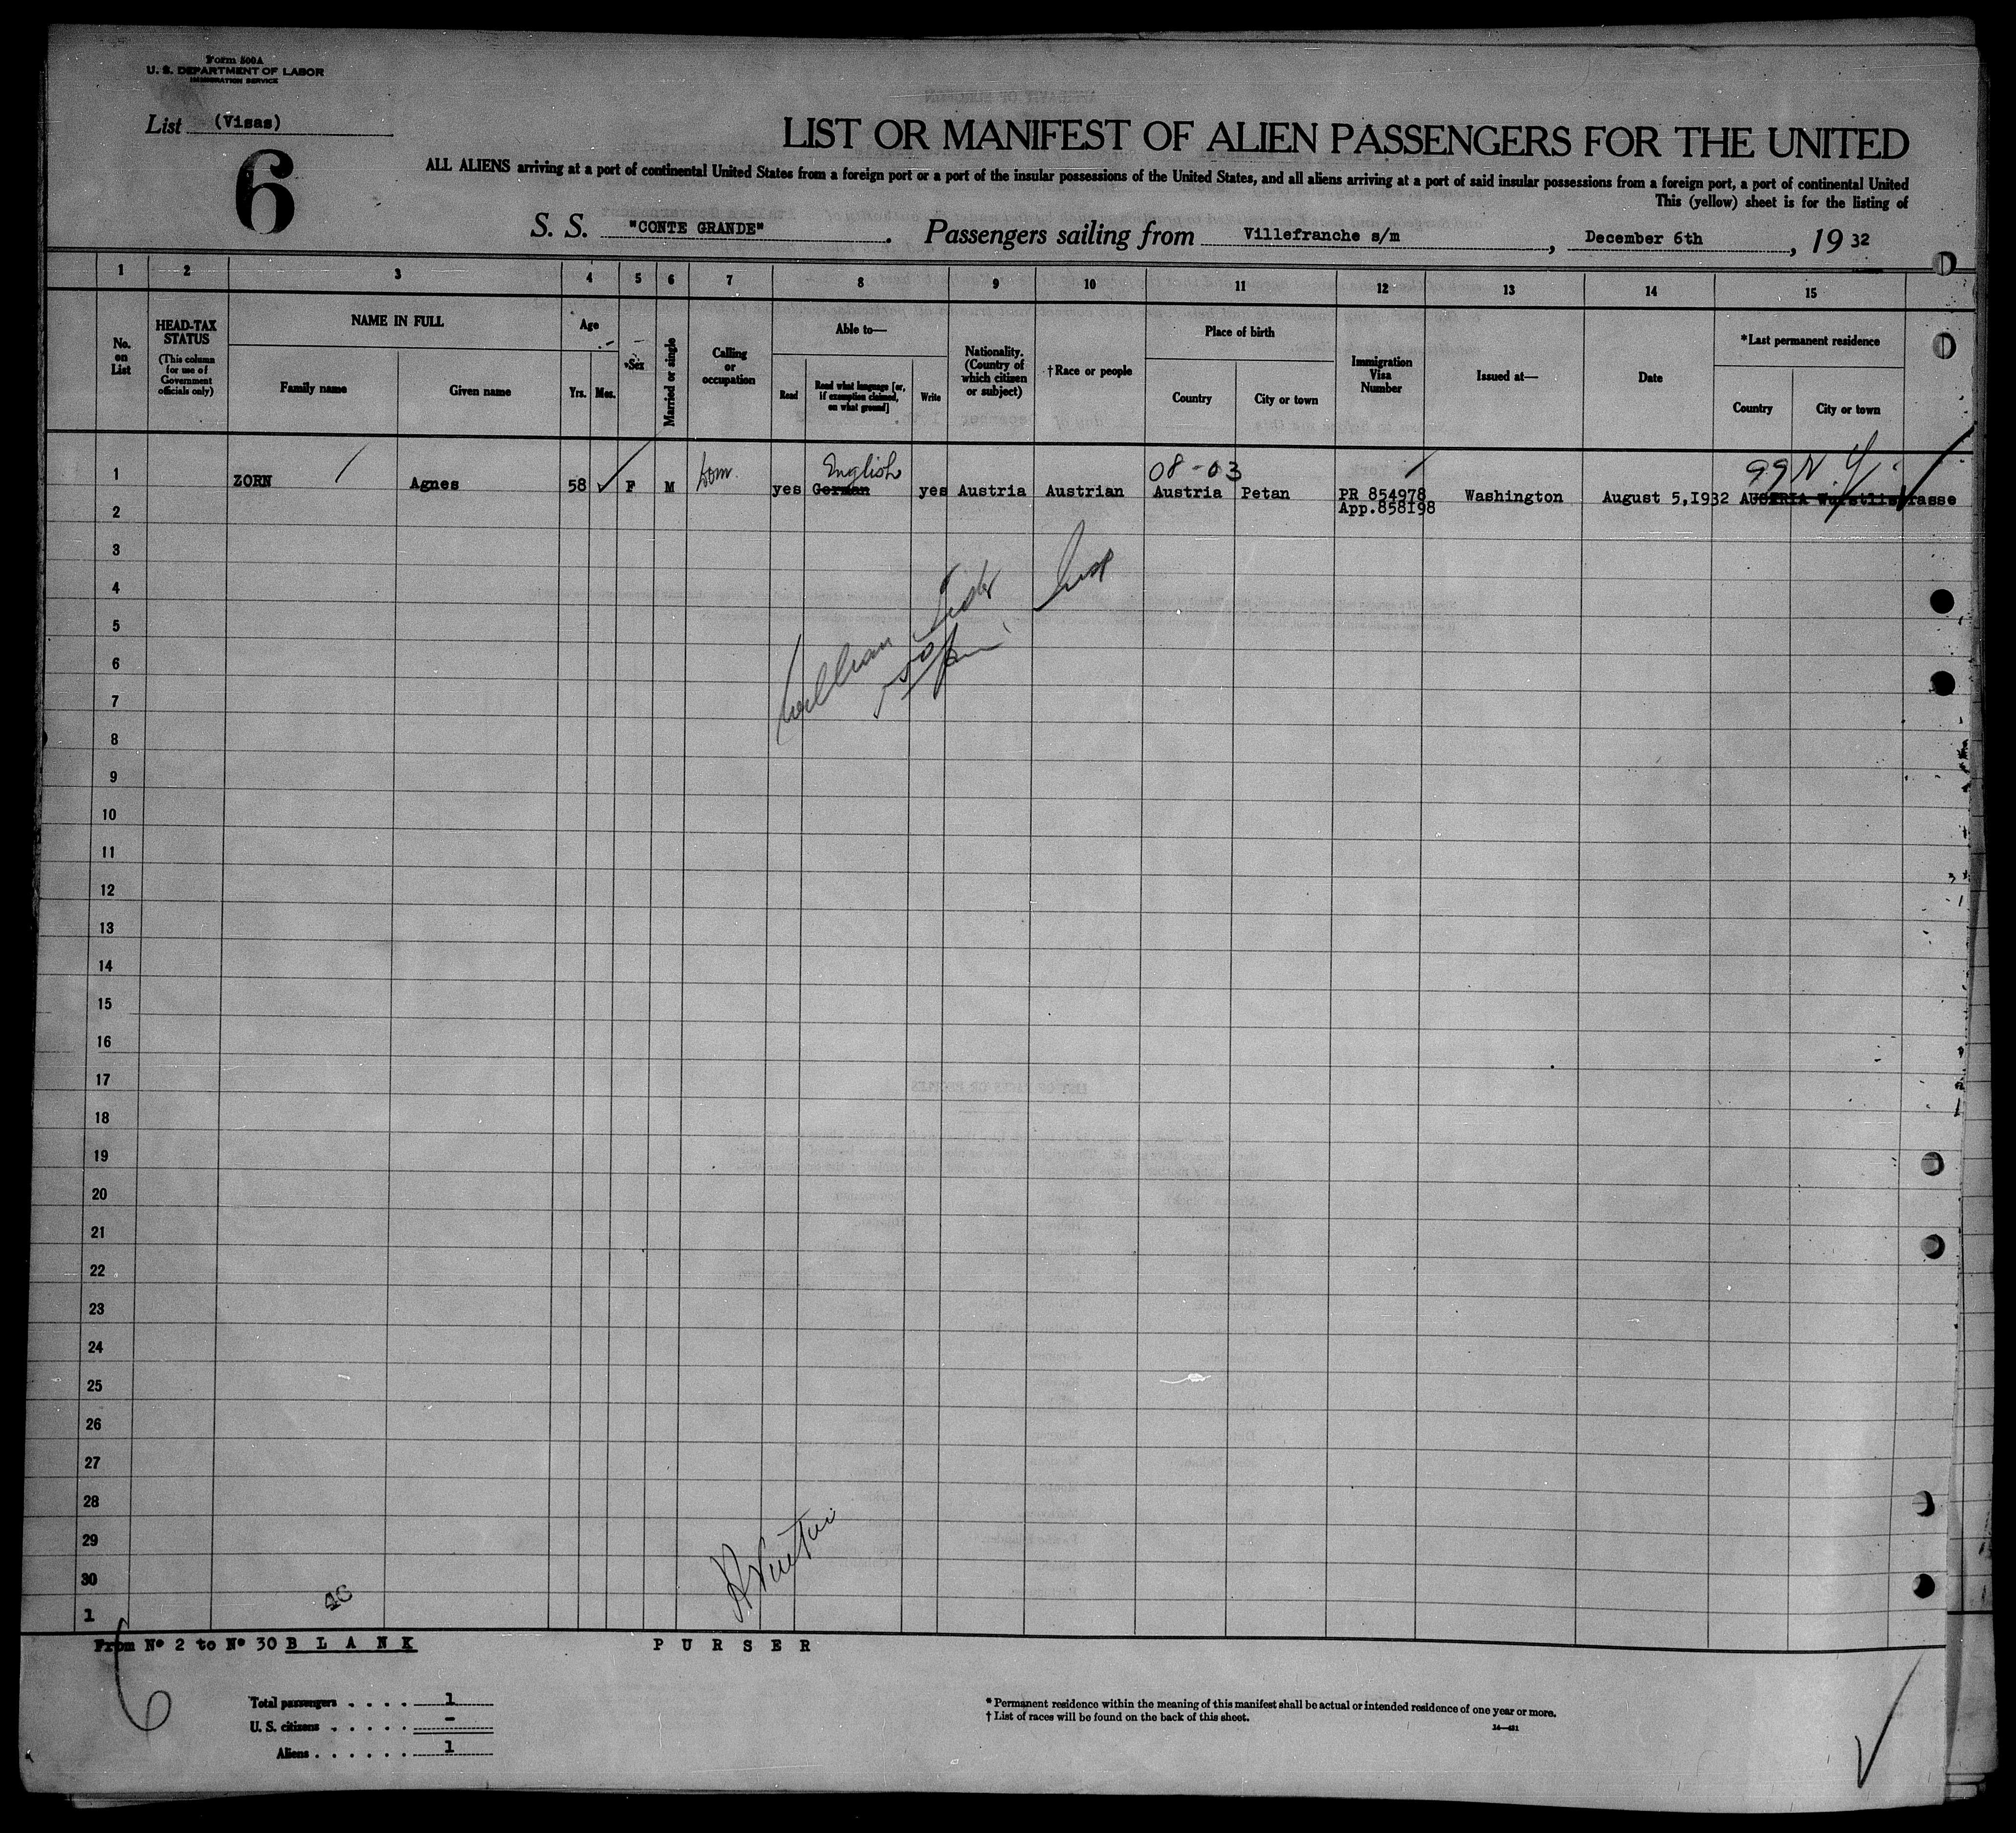 Form 500A
U. S. DEPARTMENT OF LABOR
IMMIGRATION SERVICE
List (Visas)
6
LIST OR MANIFEST OF ALIEN PASSENGERS FOR THE UNITED
ALL ALIENS arriving at a port of continental United States from a foreign port or a port of the insular possessions of the United States, and all aliens arriving at a port of said insular possessions from a foreign port, a port of continental United
This (yellow) sheet is for the listing of
S. S. "CONTE GRANDE". Passengers sailing from Villefranche s/m, December 6th, 19 32
1 2 3 4 5 6 7 8 9 10 11 12 13 14 15
No. on List
HEAD-TAX STATUS
(This column for use of Government officials only)
NAME IN FULL
Family name
Given name
Age
Yrs. Mos.
Sex
Married or single
Calling or occupation
Able to—
Read
Read what language [or, if exemption claimed, on what ground]
Write
Nationality. (Country of which citizen or subject)
†Race or people
Place of birth
Country
City or town
Immigration Visa Number
Issued at—
Date
*Last permanent residence
Country
City or town
08-03
99 N. Y.
English
1 ZORN Agnes 58 F M Dom. yes German yes Austria Austrian Austria Petan PR 854978 Washington August 5,1932 AUSTRIA
App.858198
2
3
4
5
6
7
8
9
10
11
12
13
14
15
16
17
18
19
20
21
22
23
24
25
26
27
28
29
30
1
William
From Nº 2 to Nº 30 B L A N K
P U R S E R
6
Total passengers . . . . 1
U. S. citizens . . . . . -
Aliens . . . . . . 1
* Permanent residence within the meaning of this manifest shall be actual or intended residence of one year or more.
† List of races will be found on the back of this sheet.